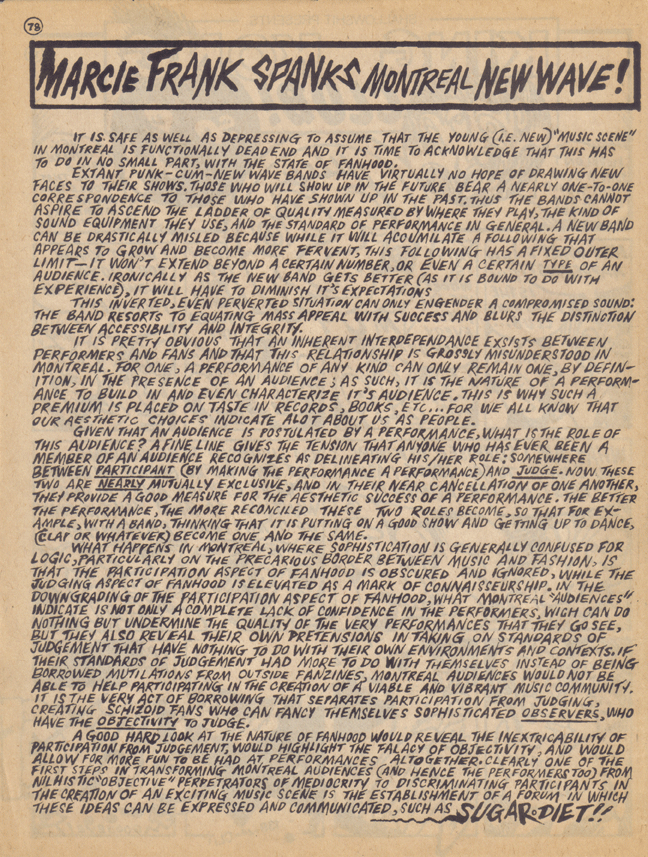 78
MARCIE FRANK SPANKS MONTREAL NEW WAVE!
IT IS SAFE AS WELL AS DEPRESSING TO ASSUME THAT THE YOUNG (I.E. NEW) "MUSIC SCENE"
IN MONTREAL IS FUNCTIONALLY DEAD END AND IT IS TIME TO ACKNOWLEDGE THAT THIS HAS
TO DO IN NO SMALL PART, WITH THE STATE OF FANHOOD.
EXTANT PUNK-CUM-NEW WAVE BANDS HAVE VIRTUALLY NO HOPE OF DRAWING NEW
FACES TO THEIR SHOWS. THOSE WHO WILL SHOW UP IN THE FUTURE BEAR A NEARLY ONE-TO-ONE
CORRESPONDENCE TO THOSE WHO HAVE SHOWN UP IN THE PAST. THUS THE BANDS CANNOT
ASPIRE TO ASCEND THE LADDER OF QUALITY MEASURED BY WHERE THEY PLAY, THE KIND OF
SOUND EQUIPMENT THEY USE, AND THE STANDARD OF PERFORMANCE IN GENERAL. A NEW BAND
CAN BE DRASTICALLY MISLED BECAUSE WHILE IT WILL ACCUMILATE A FOLLOWING THAT
APPEARS TO GROW AND BECOME MORE FERVENT, THIS FOLLOWING HAS A FIXED OUTER
LIMIT—IT WON'T EXTEND BEYOND A CERTAIN NUMBER, OR EVEN A CERTAIN TYPE OF AN
AUDIENCE. IRONICALLY AS THE NEW BAND GETS BETTER (AS IT IS BOUND TO DO WITH
EXPERIENCE), IT WILL HAVE TO DIMINISH IT'S EXPECTATIONS
THIS INVERTED, EVEN PERVERTED SITUATION CAN ONLY ENGENDER A COMPROMISED SOUND:
THE BAND RESORTS TO EQUATING MASS APPEAL WITH SUCCESS AND BLURS THE DISTINCTION
BETWEEN ACCESSIBILITY AND INTEGRITY.
IT IS PRETTY OBVIOUS THAT AN INHERENT INTERDEPENDANCE EXSISTS BETWEEN
PERFORMERS AND FANS AND THAT THIS RELATIONSHIP IS GROSSLY MISUNDERSTOOD IN
MONTREAL. FOR ONE, A PERFORMANCE OF ANY KIND CAN ONLY REMAIN ONE, BY DEFIN-
ITION, IN THE PRESENCE OF AN AUDIENCE; AS SUCH, IT IS THE NATURE OF A PERFORM-
ANCE TO BUILD IN AND EVEN CHARACTERIZE IT'S AUDIENCE. THIS IS WHY SUCH A
PREMIUM IS PLACED ON TASTE IN RECORDS, BOOKS, ETC... FOR WE ALL KNOW THAT
OUR AESTHETIC CHOICES INDICATE ALOT ABOUT US AS PEOPLE.
GIVEN THAT AN AUDIENCE IS POSTULATED BY A PERFORMANCE, WHAT IS THE ROLE OF
THIS AUDIENCE? A FINE LINE GIVES THE TENSION THAT ANYONE WHO HAS EVER BEEN A
MEMBER OF AN AUDIENCE RECOGNIZES AS DELINEATING HIS/HER ROLE; SOMEWHERE
BETWEEN PARTICIPANT (BY MAKING THE PERFORMANCE A PERFORMANCE) AND JUDGE. NOW THESE
TWO ARE NEARLY MUTUALLY EXCLUSIVE, AND IN THEIR NEAR CANCELLATION OF ONE ANOTHER,
THEY PROVIDE A GOOD MEASURE FOR THE AESTHETIC SUCCESS OF A PERFORMANCE. THE BETTER
THE PERFORMANCE, THE MORE RECONCILED THESE TWO ROLES BECOME, SO THAT FOR EX-
AMPLE, WITH A BAND, THINKING THAT IT IS PUTTING ON A GOOD SHOW AND GETTING UP TO DANCE,
(CLAP OR WHATEVER) BECOME ONE AND THE SAME.
WHAT HAPPENS IN MONTREAL, WHERE SOPHISTICATION IS GENERALLY CONFUSED FOR
LOGIC, PARTICULARLY ON THE PRECARIOUS BORDER BETWEEN MUSIC AND FASHION, IS
THAT THE PARTICIPATION ASPECT OF FANHOOD IS OBSCURED AND IGNORED, WHILE THE
JUDGING ASPECT OF FANHOOD IS ELEVATED AS A MARK OF CONNAISSEURSHIP. IN THE
DOWNGRADING OF THE PARTICIPATION ASPECT OF FANHOOD, WHAT MONTREAL "AUDIENCES"
INDICATE IS NOT ONLY A COMPLETE LACK OF CONFIDENCE IN THE PERFORMERS, WICH CAN DO
NOTHING BUT UNDERMINE THE QUALITY OF THE VERY PERFORMANCES THAT THEY GO SEE,
BUT THEY ALSO REVEAL THEIR OWN PRETENSIONS IN TAKING ON STANDARDS OF
JUDGEMENT THAT HAVE NOTHING TO DO WITH THEIR OWN ENVIRONMENTS AND CONTEXTS. IF
THEIR STANDARDS OF JUDGEMENT HAD MORE TO DO WITH THEMSELVES INSTEAD OF BEING
BORROWED MUTILATIONS FROM OUTSIDE FANZINES, MONTREAL AUDIENCES WOULD NOT BE
ABLE TO HELP PARTICIPATING IN THE CREATION OF A VIABLE AND VIBRANT MUSIC COMMUNITY.
IT IS THE VERY ACT OF BORROWING THAT SEPARATES PARTICIPATION FROM JUDGING,
CREATING SCHIZOID FANS WHO CAN FANCY THEMSELVES SOPHISTICATED OBSERVERS, WHO
HAVE THE OBJECTIVITY TO JUDGE.
A GOOD HARD LOOK AT THE NATURE OF FANHOOD WOULD REVEAL THE INEXTRICABILITY OF
PARTICIPATION FROM JUDGEMENT, WOULD HIGHLIGHT THE FALACY OF OBJECTIVITY, AND WOULD
ALLOW FOR MORE FUN TO BE HAD AT PERFORMANCES ALTOGETHER. CLEARLY ONE OF THE
FIRST STEPS IN TRANSFORMING MONTREAL AUDIENCES (AND HENCE THE PERFORMERS TOO) FROM
NILHISTIC "OBJECTIVE" PERPETRATORS OF MEDIOCRITY TO DISCRIMINATING PARTICIPANTS IN
THE CREATION OF AN EXCITING MUSIC SCENE IS THE ESTABLISHMENT OF A FORUM IN WHICH
THESE IDEAS CAN BE EXPRESSED AND COMMUNICATED, SUCH AS SUGAR-DIET!!